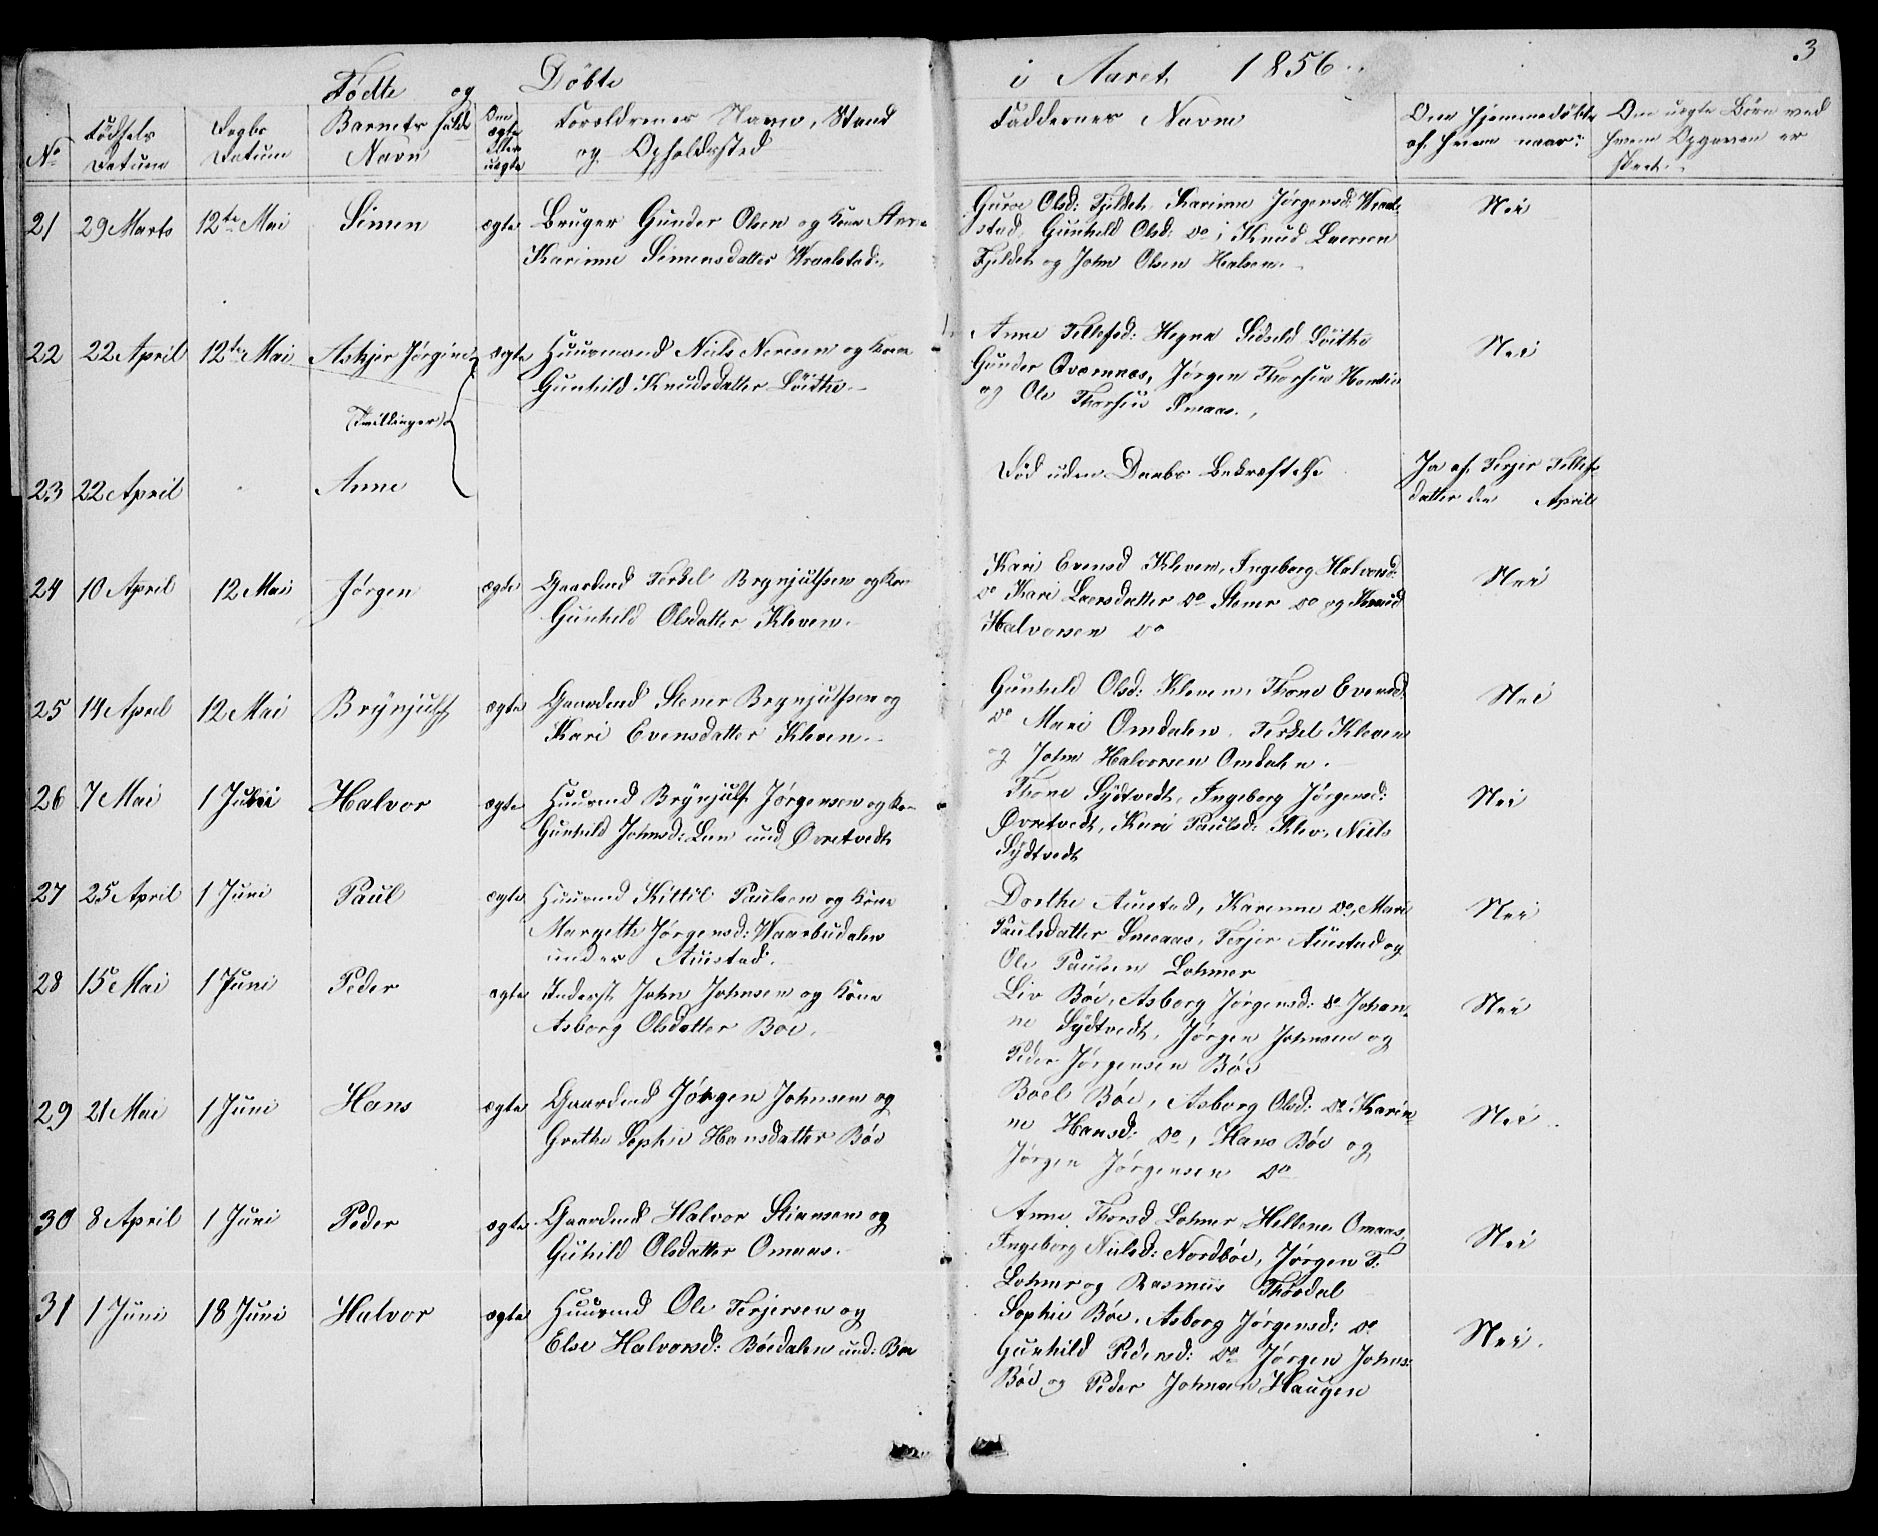 Fødte og Døbte i Aaret 1856. 3
No
Fødsels Datum
Daabs Datum
Barnets fulde Navn
Om ægte eller uægte
Forældrenes Navn, Stand og Opholdssted
Faddernes Navne
Om hjemmedøbte af hvem naar:
Om uægte Børn ved hvem Opgaven er skeet.
21 29 Marts 12te Mai Simen ægte Bruger Gunder Olsen og Kone Anne
Karinne Simensdatter Wraalstad.
Guroe Olsd: Fjeldet, Karinne Jørgensd: Wraal-
stad, Gunhild Olsd: do, Knud Larsen
Fjeldet og John Olsen Halsen.
Nei
22 22 April 12te Mai Askjer Jørgine ægte Huusmand Niels Nersen og Kone
Gunhild Knudsdatter Løithe.
(Tvillinger)
Anne Tellefsd: Hegna Sidseld Løithe
Gunder Qværnnes, Jørgen Thorsius
og Ole Thorsius Smaas.
Nei
23 22 April Anne
Død uden Daabs Bekræftelse
Ja af Terjer Tellefs-
datter den April
24 10 April 12 Mai Jørgen ægte Gaardmd Terkel Brynjulfsen og Kone
Gunhild Olsdatter Kleven.
Kari Evensd Kleven, Ingeborg Halvorsd:
do Kari Larsdatter do Stener do og Knud
Halvorsen do
Nei
25 14 April 12 Mai Brynjulf ægte Gaardmd Stener Brynjulfsen og
Kari Evensdatter Kleven.
Gunhild Olsd: Kleven, Thone Evensd:
do Mari Omdalen, Terkel Kleven
og John Halvorsen Omdalen.
Nei
26 7 Mai 1 Juni Halvor ægte Huusmd Brynjulf Jørgensen og Kone
Gunhild Johnsd: Lun und Øvretvedt
Thone Sydtvedt, Ingeborg Jørgensd:
Øvretvedt, Kari Paulsd: Klev, Niels
Sydtvedt
Nei
27 25 April 1 Juni Paul ægte Huusmd Kittil Paulsen og Kone
Margethe Jørgensd: Waarbudalen
under Auestad.
Dorthe Auestad, Karenne do, Mari
Paulsdatter Smaas, Terjer Auestad og
Ole Paulsen Lohner
Nei
28 15 Mai 1 Juni Peder ægte Inderst John Johnsen og Kone
Asborg Olsdatter Boe.
Liv Bøe, Asborg Jørgensd: do Johan-
ne Sydtvedt, Jørgen Johnsen og
Peder Jørgensen Bøe
Nei
29 21 Mai 1 Juni Hans ægte Gaardmd Jørgen Johnsen og
Grethe Sophie Hansdatter Bøe
Boel Bøe, Asborg Olsd: do Karin-
ne Hansd: do, Hans Bøe og
Jørgen Jørgensen do
Nei
30 8 April 1 Juni Peder ægte Gaardmd Halvor Stiansen og
Guhild Olsdatter Omaas.
Anne Thorsd Lohner Hellene Omaas,
Ingeborg Nielsd: Nordbøe, Jørgen T.
Lohner og Rasmus Thordal
Nei
31 1 Juni 18 Juni Halvor ægte Huusmd Ole Terjersen og
Else Halvorsd: Bøedalen und: Bøe
Sophie Bøe, Asborg Jørgensd: do
Gunhild Pedersd: do Jørgen Johns:
Bøe og Peder Johnsen Haugen
Nei.